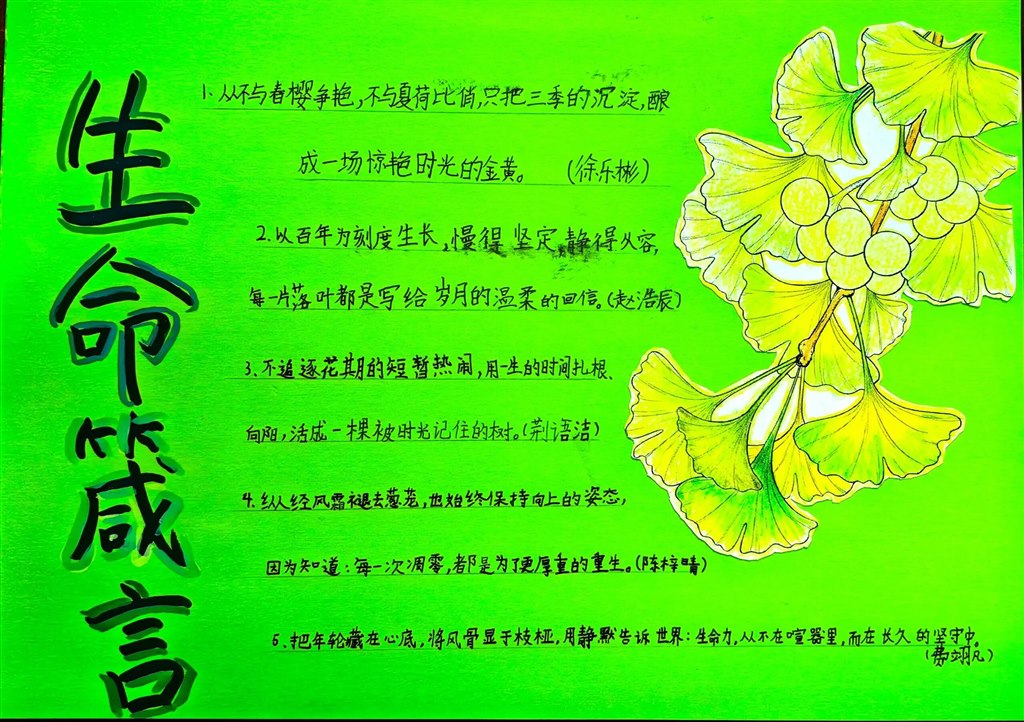 生命箴言
1、从不与春樱争艳,不与夏荷比俏,只把三季的沉淀,酿
成一场惊艳时光的金黄。(徐乐彬)
2.以百年为刻度生长,慢得坚定,静得从容,
每一片落叶都是写给岁月的温柔的回信。(赵浩辰)
3、不追逐花期的短暂热闹,用一生的时间扎根、
向阳,活成一棵被时光记住的树。(荆语洁)
4、纵经风霜褪去葱茏,也始终保持向上的姿态,
因为知道:每一次凋零,都是为了更厚重的重生。(陈梓晴)
5、把年轮藏在心底,将风骨显于枝桠,用静默告诉世界:生命力,从不在喧嚣里,而在长久的坚守中。
(费翊凡)